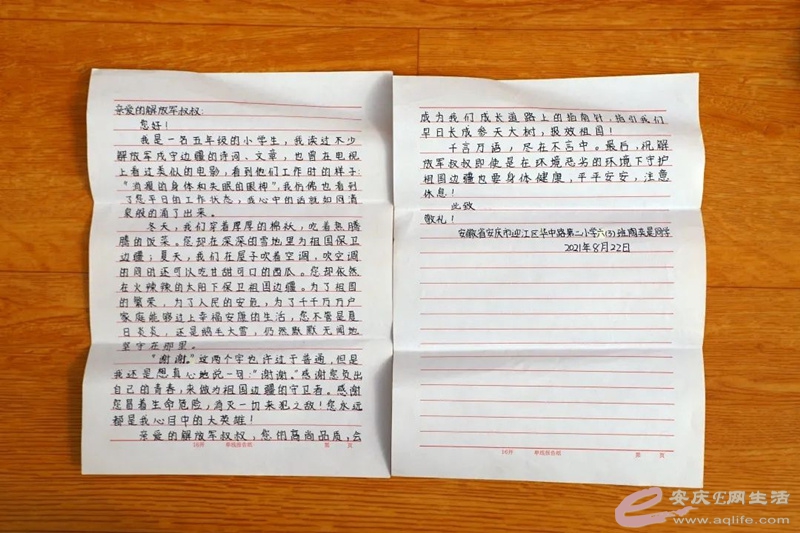 亲爱的解放军叔叔：
您好！
我是一名五年级的小学生，我读过不少
解放军戍守边疆的诗词、文章，也曾在电视
上看过类似的电影，看到他们工作时的样子：
“消瘦的身体和失眠的眼神”我仿佛也看到
了您平日的工作状态，我心中的话就如同清
泉般的涌了出来。
冬天，我们穿着厚厚的棉袄，吃着热腾
腾的饭菜。您却在深深的雪地里为祖国保卫
边疆；夏天，我们在屋子吹着空调，吹空调
的同时还可以吃甘甜可口的西瓜。您却依然
在火辣辣的太阳下保卫祖国边疆。为了祖国
的繁荣，为了人民的安危，为了千千万万户
家庭能够过上幸福安康的生活，您不管是夏
日炎炎，还是鹅毛大雪，仍然默默无闻地
坚守在那里。
“谢谢。”这两个字也许过于普通，但是
我还是想真心地说一句：“谢谢。”感谢您负出
自己的青春，来做为祖国边疆的守卫者。感谢
您冒着生命危险，消灭一切来犯之敌！您永远
都是我心目中的大英雄！
亲爱的解放军叔叔，您们高尚品质，会
16开 单线报告纸 第 页
成为我们成长道路上的指南针，指引我们
早日长成参天大树，报效祖国！
千言万语，尽在不言中。最后，祝解
放军叔叔即使是在环境恶劣的环境下守护
祖国边疆也要身体健康，平平安安，注意
休息！
此致
敬礼！
安徽省安庆市迎江区华中路第二小学六(3)班陶奕星同学
2021年8月22日
16开 单线报告纸 第 页
安庆E网生活
www.aqlife.com